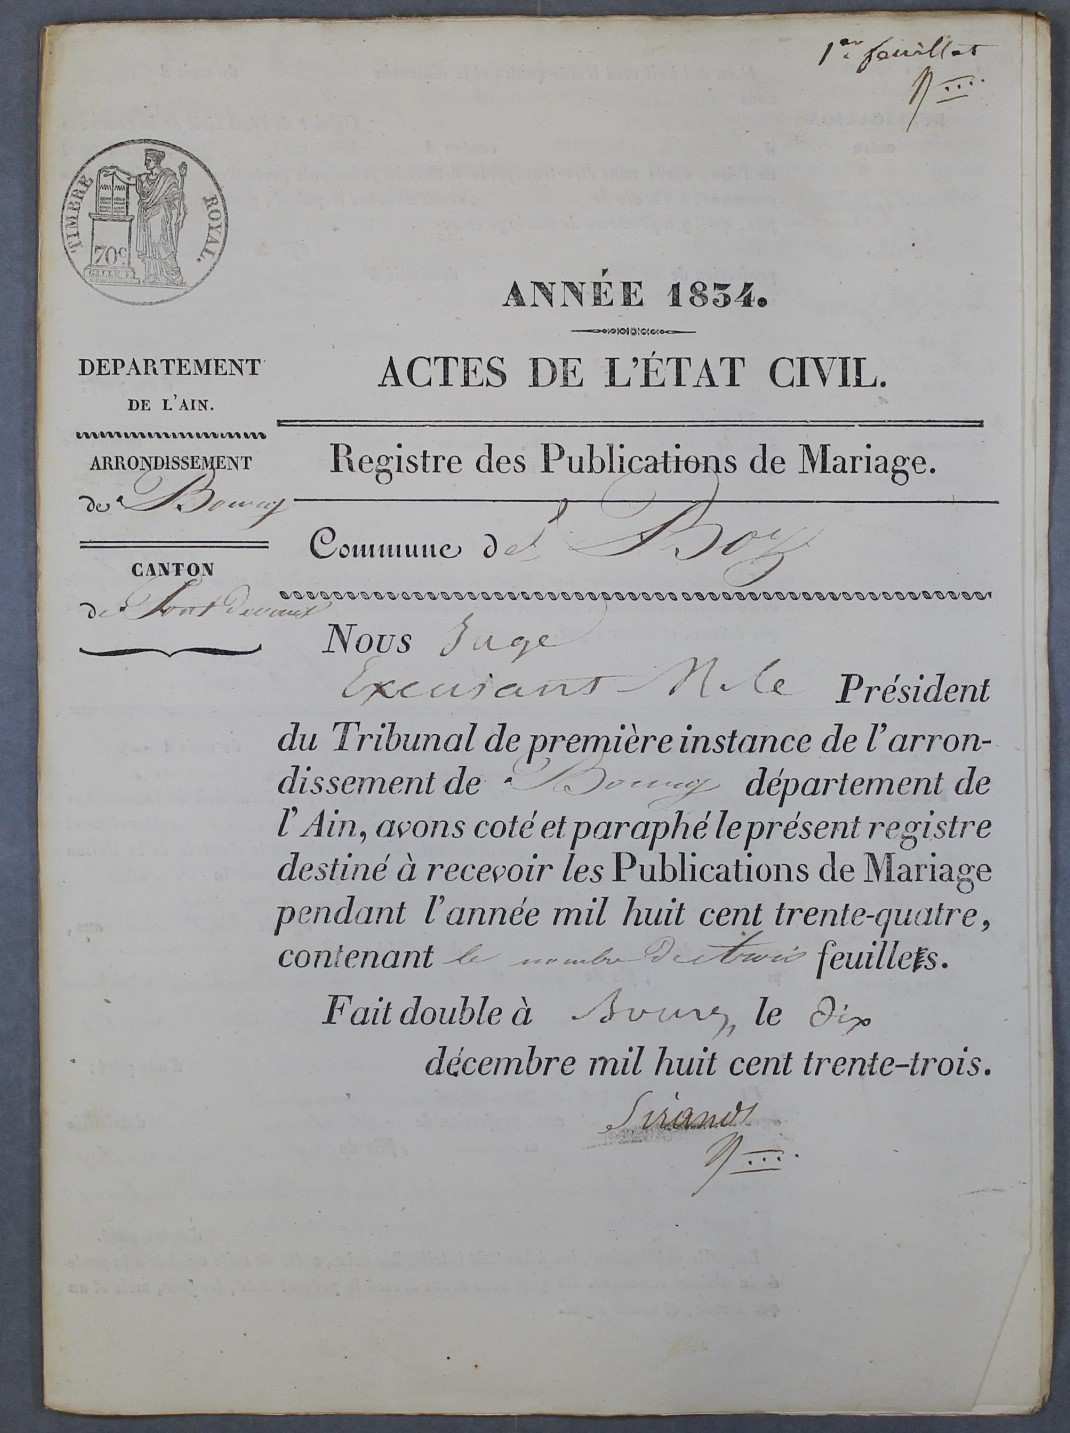 1er feuillet
TIMBRE ROYAL.
70c
ANNÉE 1834.
DEPARTEMENT
DE L'AIN.
ACTES DE L'ÉTAT CIVIL.
ARRONDISSEMENT
de Bourg
Registre des Publications de Mariage.
Commune de Boz
CANTON
de Pont de vaux
Nous Juge
Excusant M. le Président
du Tribunal de première instance de l'arron-
dissement de Bourg département de
l'Ain, avons coté et paraphé le présent registre
destiné à recevoir les Publications de Mariage
pendant l'année mil huit cent trente-quatre,
contenant le nombre de trois feuillets.
Fait double à Bourg, le dix
décembre mil huit cent trente-trois.
Sirand